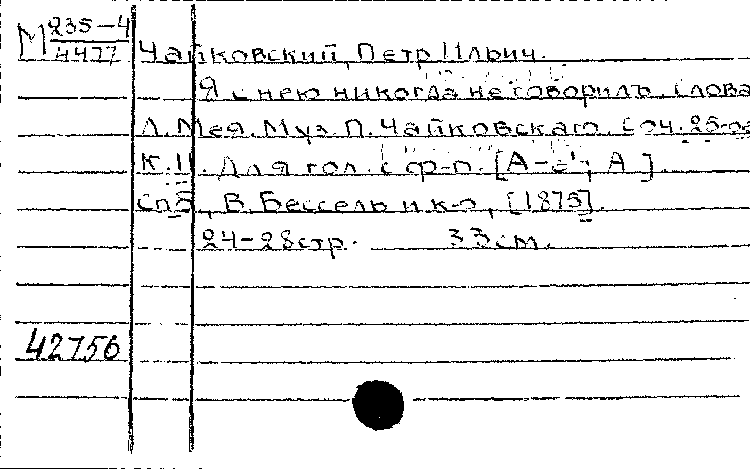 М 235-4
4477
Чайковский, Петр Ильич.
Я с нею никогда не говорилъ. Слова
Л. Мея. Муз. П. Чайковскаго. Соч. 25-
К. II. Для гол. с ф-п. [A-e'; A].
Спб, В. Бессель и к-о, [1875].
24-28 стр. 33 см.
42756